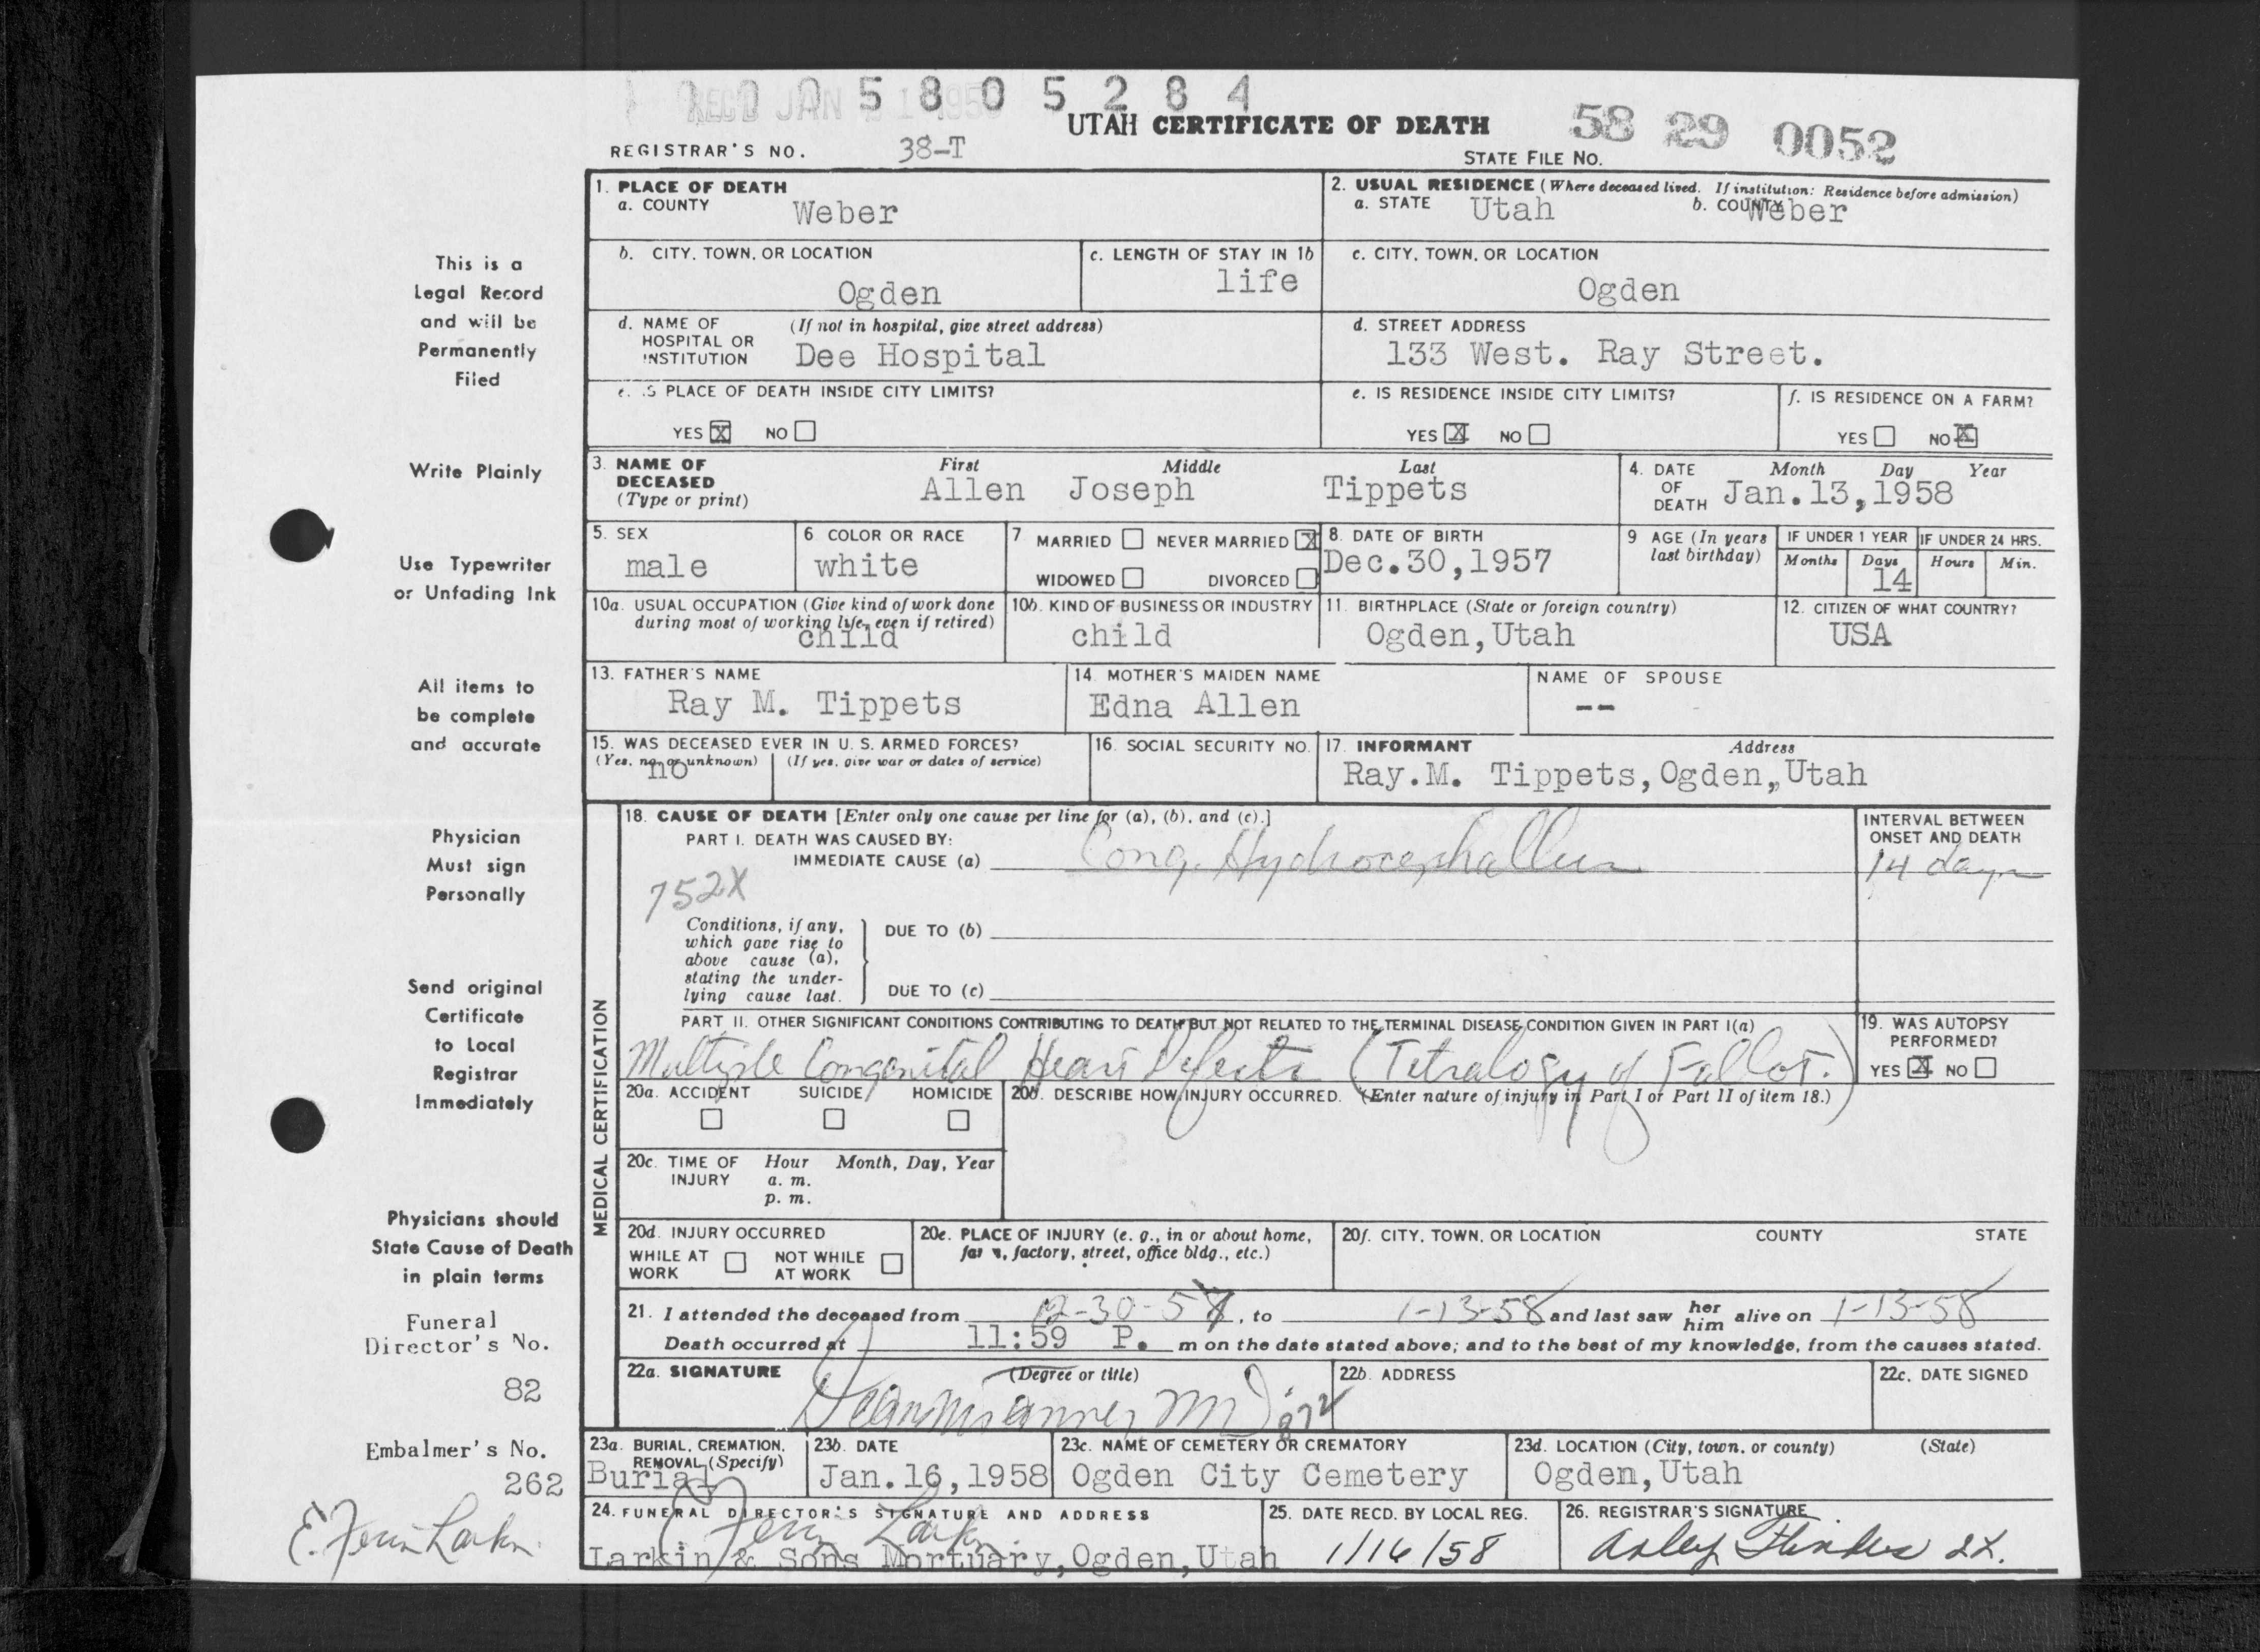 REC'D JAN
1 0 0 5 8 0 5 2 8 4
UTAH CERTIFICATE OF DEATH
58 29 0052
REGISTRAR'S NO. 38-T
STATE FILE NO.
1. PLACE OF DEATH
a. COUNTY Weber
2. USUAL RESIDENCE (Where deceased lived. If institution: Residence before admission)
a. STATE Utah b. COUNTY Weber
b. CITY, TOWN, OR LOCATION
Ogden
c. LENGTH OF STAY IN 1b
life
c. CITY, TOWN, OR LOCATION
Ogden
d. NAME OF HOSPITAL OR INSTITUTION (If not in hospital, give street address)
Dee Hospital
d. STREET ADDRESS
133 West. Ray Street.
e. IS PLACE OF DEATH INSIDE CITY LIMITS?
YES X NO
e. IS RESIDENCE INSIDE CITY LIMITS?
YES X NO
f. IS RESIDENCE ON A FARM?
YES NO X
3. NAME OF DECEASED (Type or print)
First Middle Last
Allen Joseph Tippets
4. DATE OF DEATH Month Day Year
Jan.13,1958
5. SEX
male
6 COLOR OR RACE
white
7 MARRIED NEVER MARRIED X
WIDOWED DIVORCED
8. DATE OF BIRTH
Dec.30,1957
9 AGE (In years last birthday)
IF UNDER 1 YEAR
Months Days
14
IF UNDER 24 HRS.
Hours Min.
10a. USUAL OCCUPATION (Give kind of work done during most of working life, even if retired)
child
10b. KIND OF BUSINESS OR INDUSTRY
child
11. BIRTHPLACE (State or foreign country)
Ogden,Utah
12. CITIZEN OF WHAT COUNTRY?
USA
13. FATHER'S NAME
Ray M. Tippets
14. MOTHER'S MAIDEN NAME
Edna Allen
NAME OF SPOUSE
--
15. WAS DECEASED EVER IN U. S. ARMED FORCES?
(Yes, no, or unknown) (If yes, give war or dates of service)
no
16. SOCIAL SECURITY NO.
17. INFORMANT Address
Ray.M. Tippets,Ogden,Utah
18. CAUSE OF DEATH [Enter only one cause per line for (a), (b), and (c).]
PART I. DEATH WAS CAUSED BY:
IMMEDIATE CAUSE (a) Cong. Hydrocephallus
INTERVAL BETWEEN ONSET AND DEATH
14 days
752X
Conditions, if any, which gave rise to above cause (a), stating the underlying cause last.
DUE TO (b)
DUE TO (c)
PART II. OTHER SIGNIFICANT CONDITIONS CONTRIBUTING TO DEATH BUT NOT RELATED TO THE TERMINAL DISEASE CONDITION GIVEN IN PART I(a)
Multiple Congenital Heart Defects (Tetralogy of Fallot.)
19. WAS AUTOPSY PERFORMED?
YES X NO
20a. ACCIDENT SUICIDE HOMICIDE
20b. DESCRIBE HOW INJURY OCCURRED. (Enter nature of injury in Part I or Part II of item 18.)
20c. TIME OF INJURY Hour Month, Day, Year
a. m.
p. m.
20d. INJURY OCCURRED
WHILE AT WORK NOT WHILE AT WORK
20e. PLACE OF INJURY (e. g., in or about home, farm, factory, street, office bldg., etc.)
20f. CITY, TOWN, OR LOCATION COUNTY STATE
21. I attended the deceased from 12-30-57, to 1-13-58 and last saw her him alive on 1-13-58
Death occurred at 11:59 P. m on the date stated above; and to the best of my knowledge, from the causes stated.
22a. SIGNATURE (Degree or title)
MD
22b. ADDRESS
22c. DATE SIGNED
23a. BURIAL, CREMATION, REMOVAL (Specify)
Burial
23b. DATE
Jan.16,1958
23c. NAME OF CEMETERY OR CREMATORY
Ogden City Cemetery
23d. LOCATION (City, town, or county) (State)
Ogden,Utah
24. FUNERAL DIRECTOR'S SIGNATURE AND ADDRESS
E. Fern Larkin
Larkin & Sons Mortuary,Ogden,Utah
25. DATE RECD. BY LOCAL REG.
1/16/58
26. REGISTRAR'S SIGNATURE
MEDICAL CERTIFICATION
This is a
Legal Record
and will be
Permanently
Filed
Write Plainly
Use Typewriter
or Unfading Ink
All items to
be complete
and accurate
Physician
Must sign
Personally
Send original
Certificate
to Local
Registrar
Immediately
Physicians should
State Cause of Death
in plain terms
Funeral
Director's No.
82
Embalmer's No.
262
E. Fern Larkin